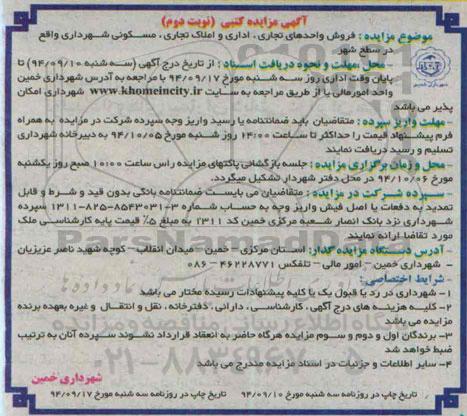 آگهی مزایده کتبی (نوبت دوم)
موضوع مزایده : فروش واحدهای تجاری ، اداری و املاک تجاری ، مسکونی شهرداری واقع
در سطح شهر
- محل ،مهلت و نحوه دریافت اسناد : از تاریخ درج آگهی (سه شنبه ۹۴/۰۹/۱۰) تا
پایان وقت اداری روز سه شنبه مورخ ۹۴/۰۹/۱۷ با مراجعه به آدرس شهرداری خمین
واحد امورمالی یا از طریق مراجعه به سایت www.khomeincity.ir شهرداری امکان
پذیر می باشد
- مهلت واریز سپرده : متقاضیان باید ضمانتنامه یا رسید واریز وجه سپرده شرکت در مزایده به همراه
فرم پیشنهاد قیمت را حداکثر تا ساعت ۱۴:۰۰ روز شنبه مورخ ۹۴/۱۰/۰۵ به دبیرخانه شهرداری
تسلیم و رسید دریافت نمایند
- محل وزمان برگزاری مزایده : جلسه بازگشائی پاکتهای مزایده راس ساعت ۱۰:۰۰ صبح روز یکشنبه
مورخ ۹۴/۱۰/۰۶ در محل دفتر شهردار تشکیل میگردد.
- سپرده شرکت در مزایده : متقاضیان می بایست ضمانتنامه بانکی بدون قید و شرط و قابل
تمدید به دفعات یا اصل فیش واریز وجه به حساب شماره ۳-۸۵۴۳۰۳۱-۸۲۵-۱۳۱۱ سپرده
شهرداری نزد بانک انصار شعبه مرکزی خمین کد ۱۳۱۱ به مبلغ ۵٪ قیمت پایه کارشناسی ملک
مورد تقاضا ارائه نمایند
آدرس دستگاه مزایده گذار: استان مرکزی - خمین - میدان انقلاب - کوچه شهید ناصر عزیزیان
- شهرداری خمین - امور مالی - تلفکس ۴۶۲۲۸۷۷۱ - ۰۸۶
شرایط اختصاصی :
۱- شهرداری در رد یا قبول یک یا کلیه پیشنهادات رسیده مختار می باشد
۲- کلیه هزینه های درج آگهی ، کارشناسی ، دارائی ، دفترخانه ، نقل و انتقال و غیره بعهده برنده
مزایده می باشد
۳- برندگان اول و دوم و سوم مزایده هرگاه حاضر به انعقاد قرارداد نشوند سپرده آنان به ترتیب
ضبط خواهد شد
۴- سایر اطلاعات و جزئیات در اسناد مزایده مندرج می باشد
شهرداری خمین
تاریخ چاپ در روزنامه سه شنبه مورخ ۹۴/۰۹/۱۰ تاریخ چاپ در روزنامه سه شنبه مورخ ۹۴/۰۹/۱۷